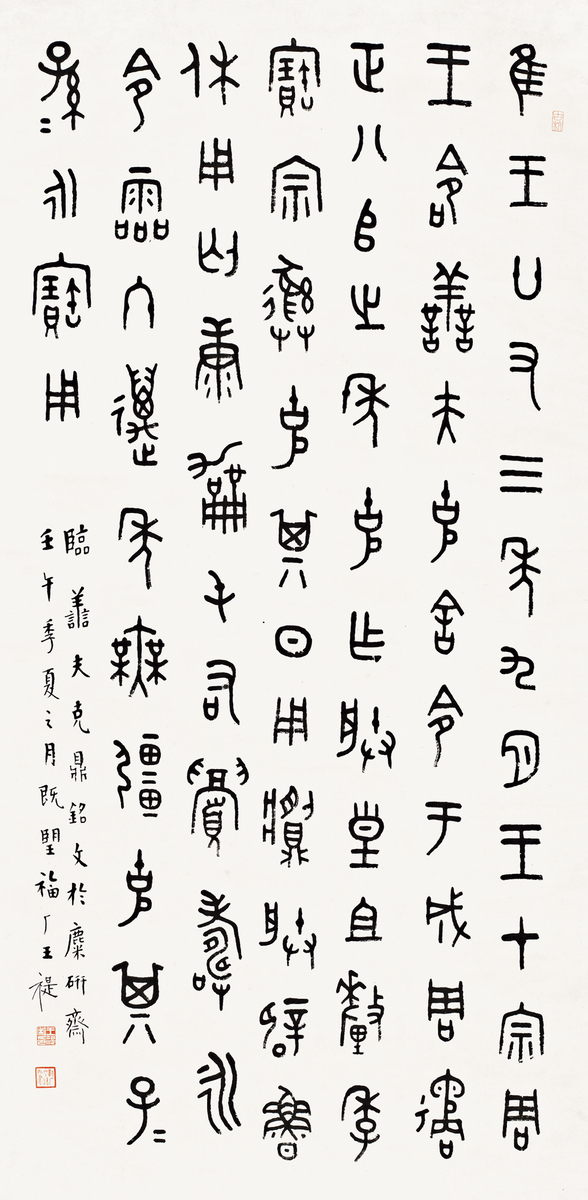 隹王廿又三年九月王才宗周
王命善夫克舍令于成周遹
正八𠂤之年克乍朕皇且釐季
寶宗彝克其日用䵼朕辟魯
休用匄康勵屯右眉壽永
令霝冬邁年無疆克其子＝
孫＝永寶用
臨譱夫克鼎銘文於麋研齋
壬午季夏之月既望福厂王禔